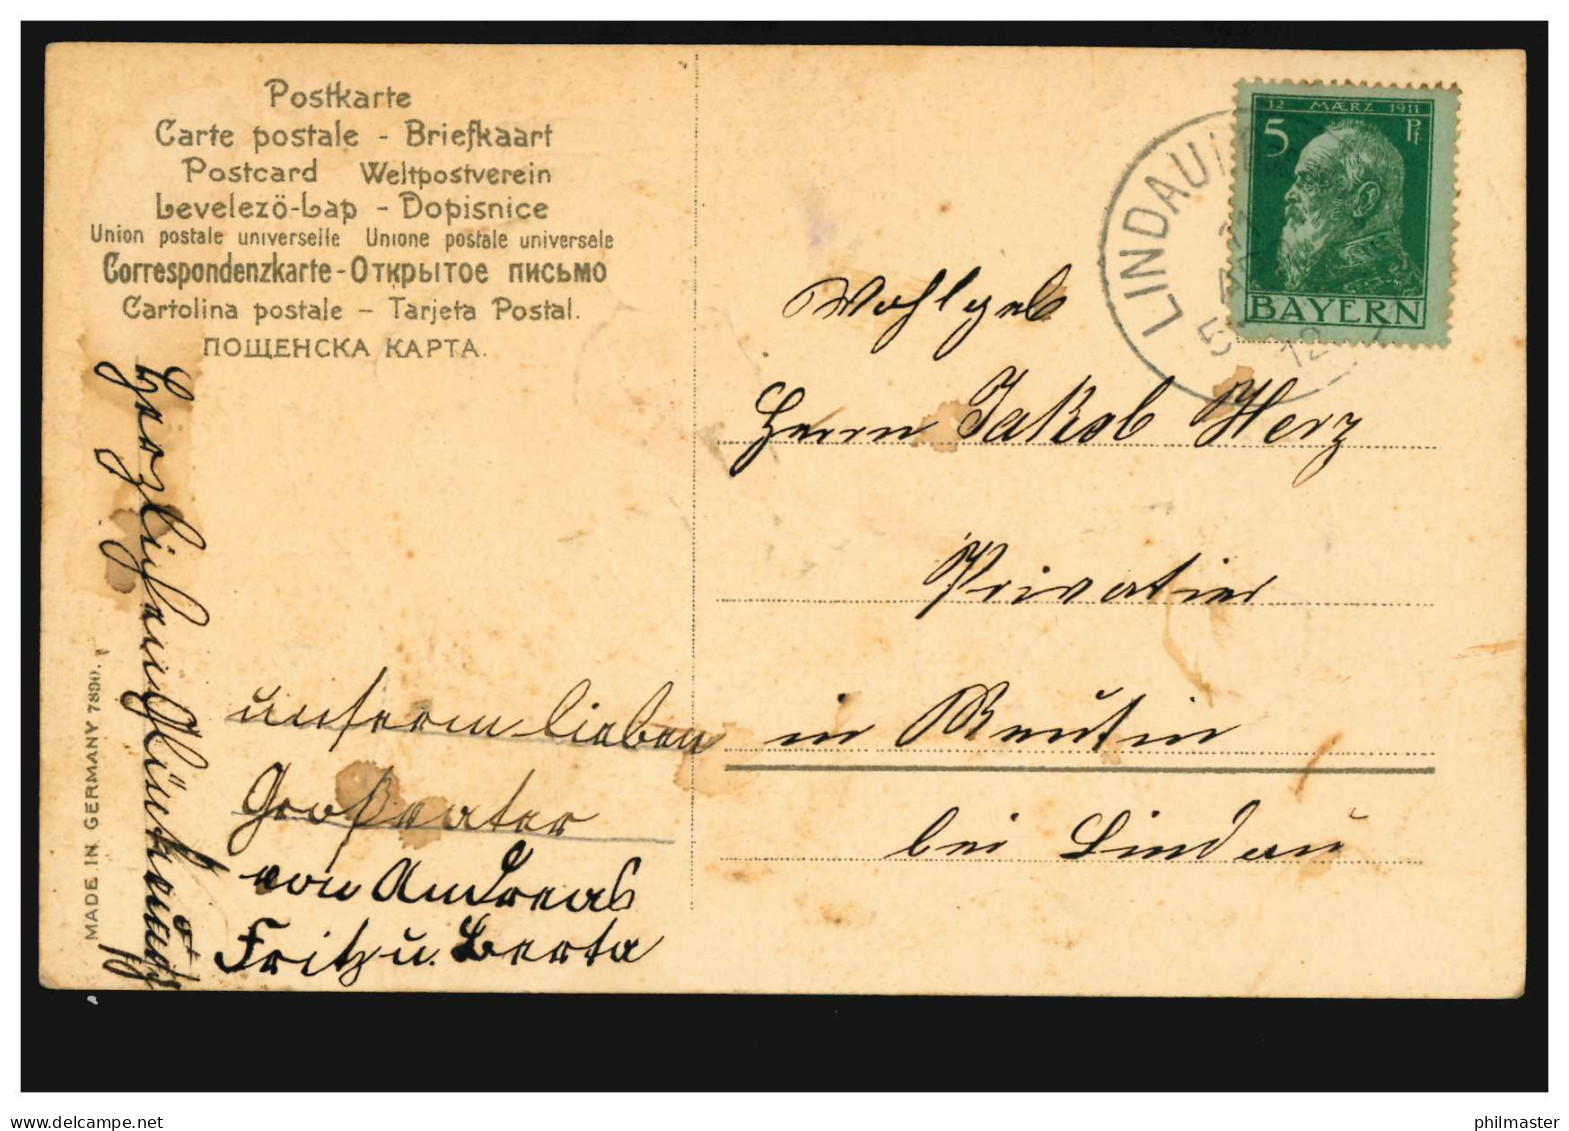 Postkarte
Carte postale - Briefkaart
Postcard Weltpostverein
Levelezö-Lap - Dopisnice
Union postale universelle Unione postale universale
Correspondenzkarte - Открытое письмо
Cartolina postale - Tarjeta Postal.
ПОЩЕНСКА КАРТА.
MADE IN GERMANY 7890.
Herzlichen Glückwunsch
unserm lieben
Großvater
von Andreas
Fritz u. Berta
LINDAU
12
12 MÆRZ 1911
5 Pf
BAYERN
Wohlgeb
Herrn Jakob Herz
Privatier
in Reutin
bei Lindau
www.delcampe.net
philmaster